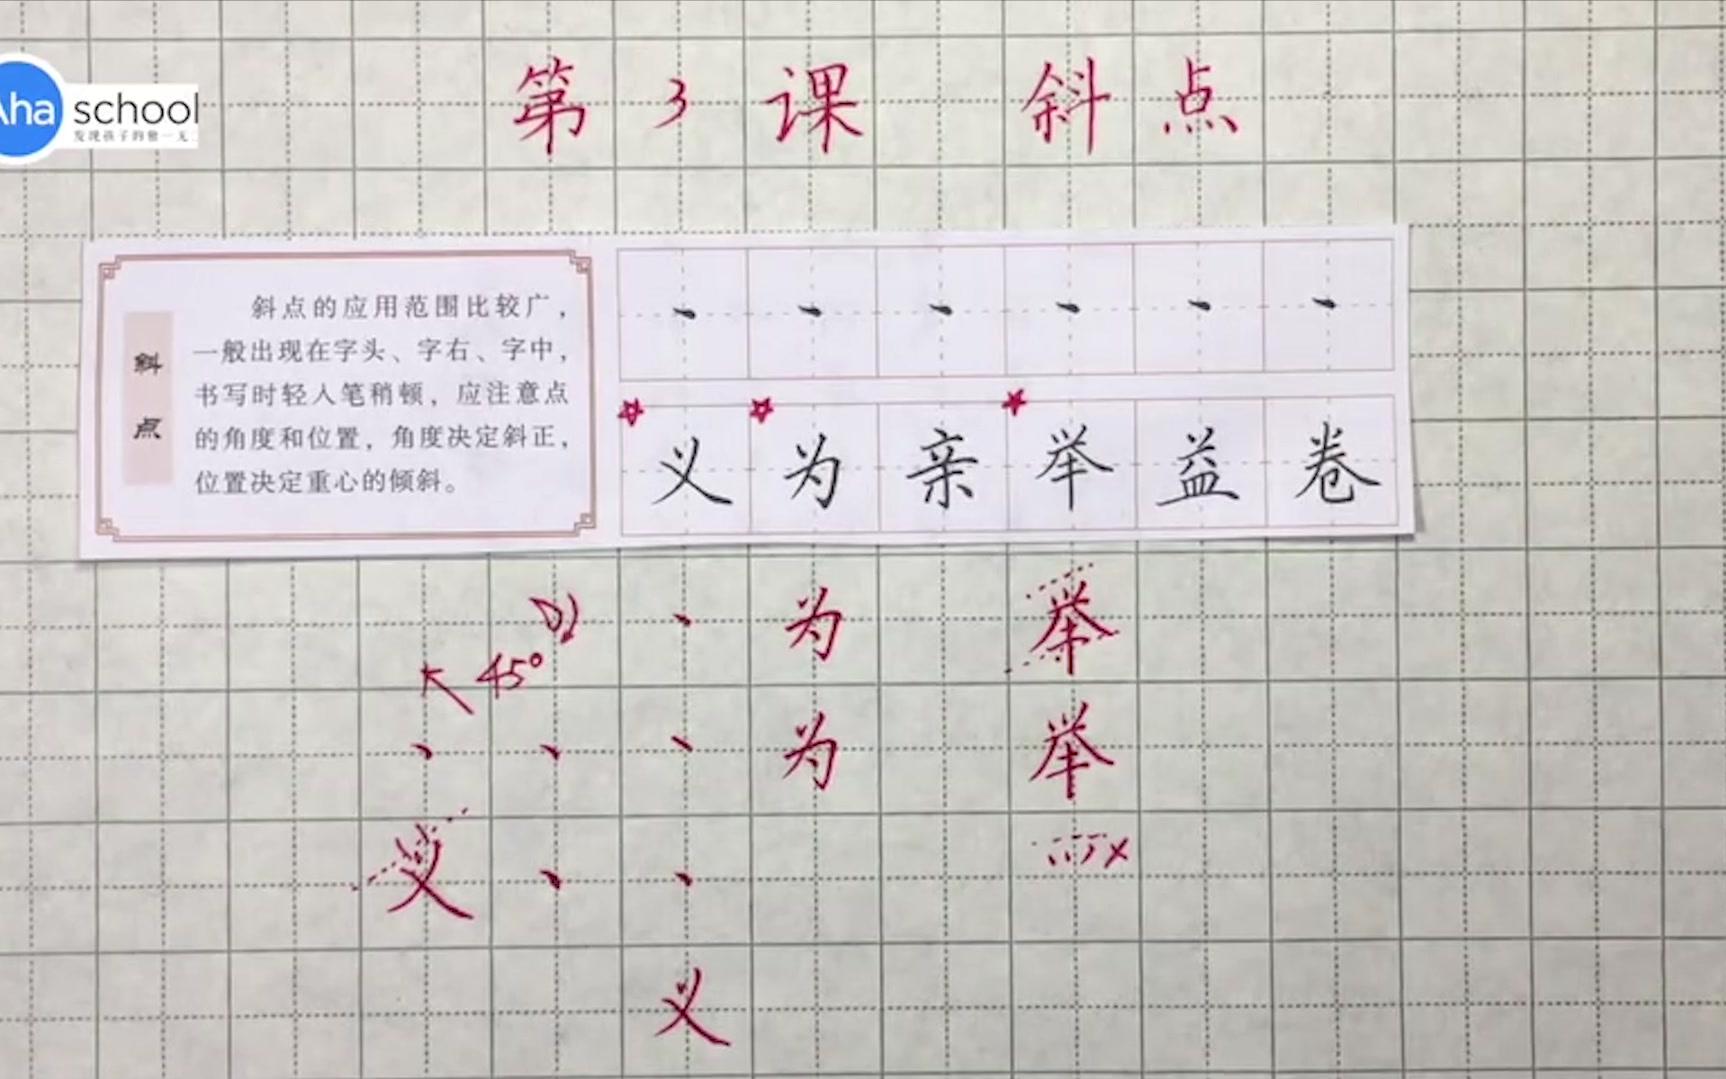 第3课 斜点
Aha school
发现孩子的独一无二
斜点
斜点的应用范围比较广，
一般出现在字头、字右、字中，
书写时轻入笔稍顿，应注意点
的角度和位置，角度决定斜正，
位置决定重心的倾斜。
义 为 亲 举 益 卷
为 举
45°
为 举
义
义